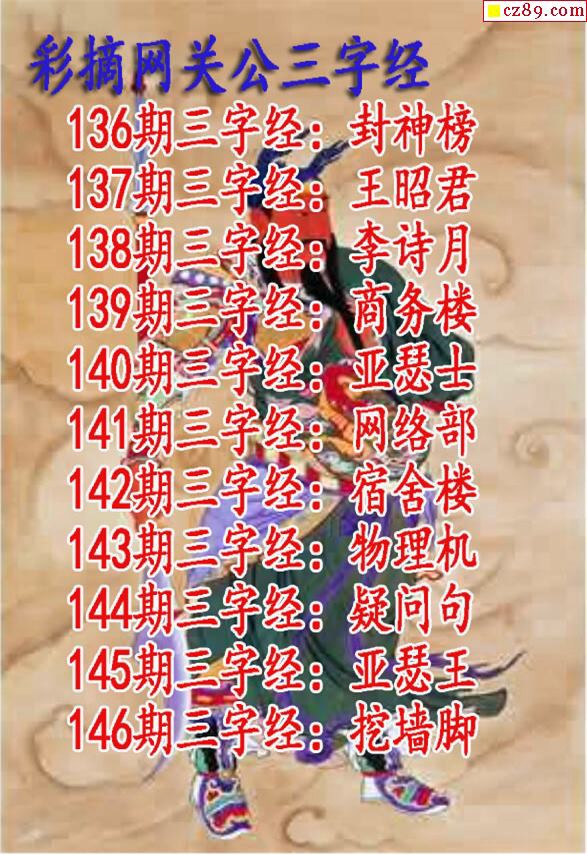 cz89.com
彩摘网关公三字经
136期三字经：封神榜
137期三字经：王昭君
138期三字经：李诗月
139期三字经：商务楼
140期三字经：亚瑟士
141期三字经：网络部
142期三字经：宿舍楼
143期三字经：物理机
144期三字经：疑问句
145期三字经：亚瑟王
146期三字经：挖墙脚